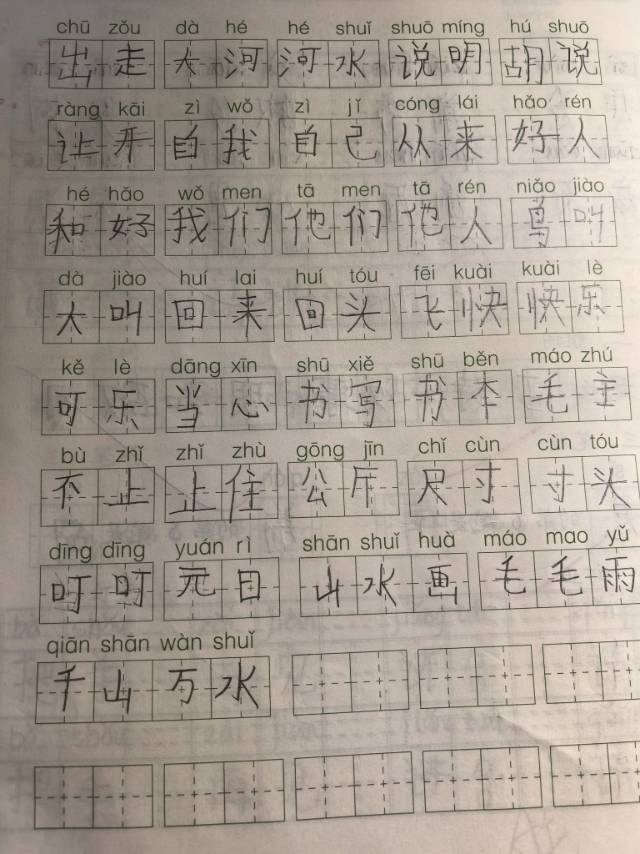 chū zǒu dà hé hé shuǐ shuō míng hú shuō
出走 大河 河水 说明 胡说
ràng kāi zì wǒ zì jǐ cóng lái hǎo rén
让开 自我 自己 从来 好人
hé hǎo wǒ men tā men tā rén niǎo jiào
和好 我们 他们 他人 鸟叫
dà jiào huí lai huí tóu fēi kuài kuài lè
大叫 回来 回头 飞快 快乐
kě lè dāng xīn shū xiě shū běn máo zhú
可乐 当心 书写 书本 毛主
bù zhǐ zhǐ zhù gōng jīn chǐ cùn cùn tóu
不止 止住 公斤 尺寸 寸头
dīng dīng yuán rì shān shuǐ huà máo mao yǔ
叮叮 元日 山水画 毛毛雨
qiān shān wàn shuǐ
千山万水